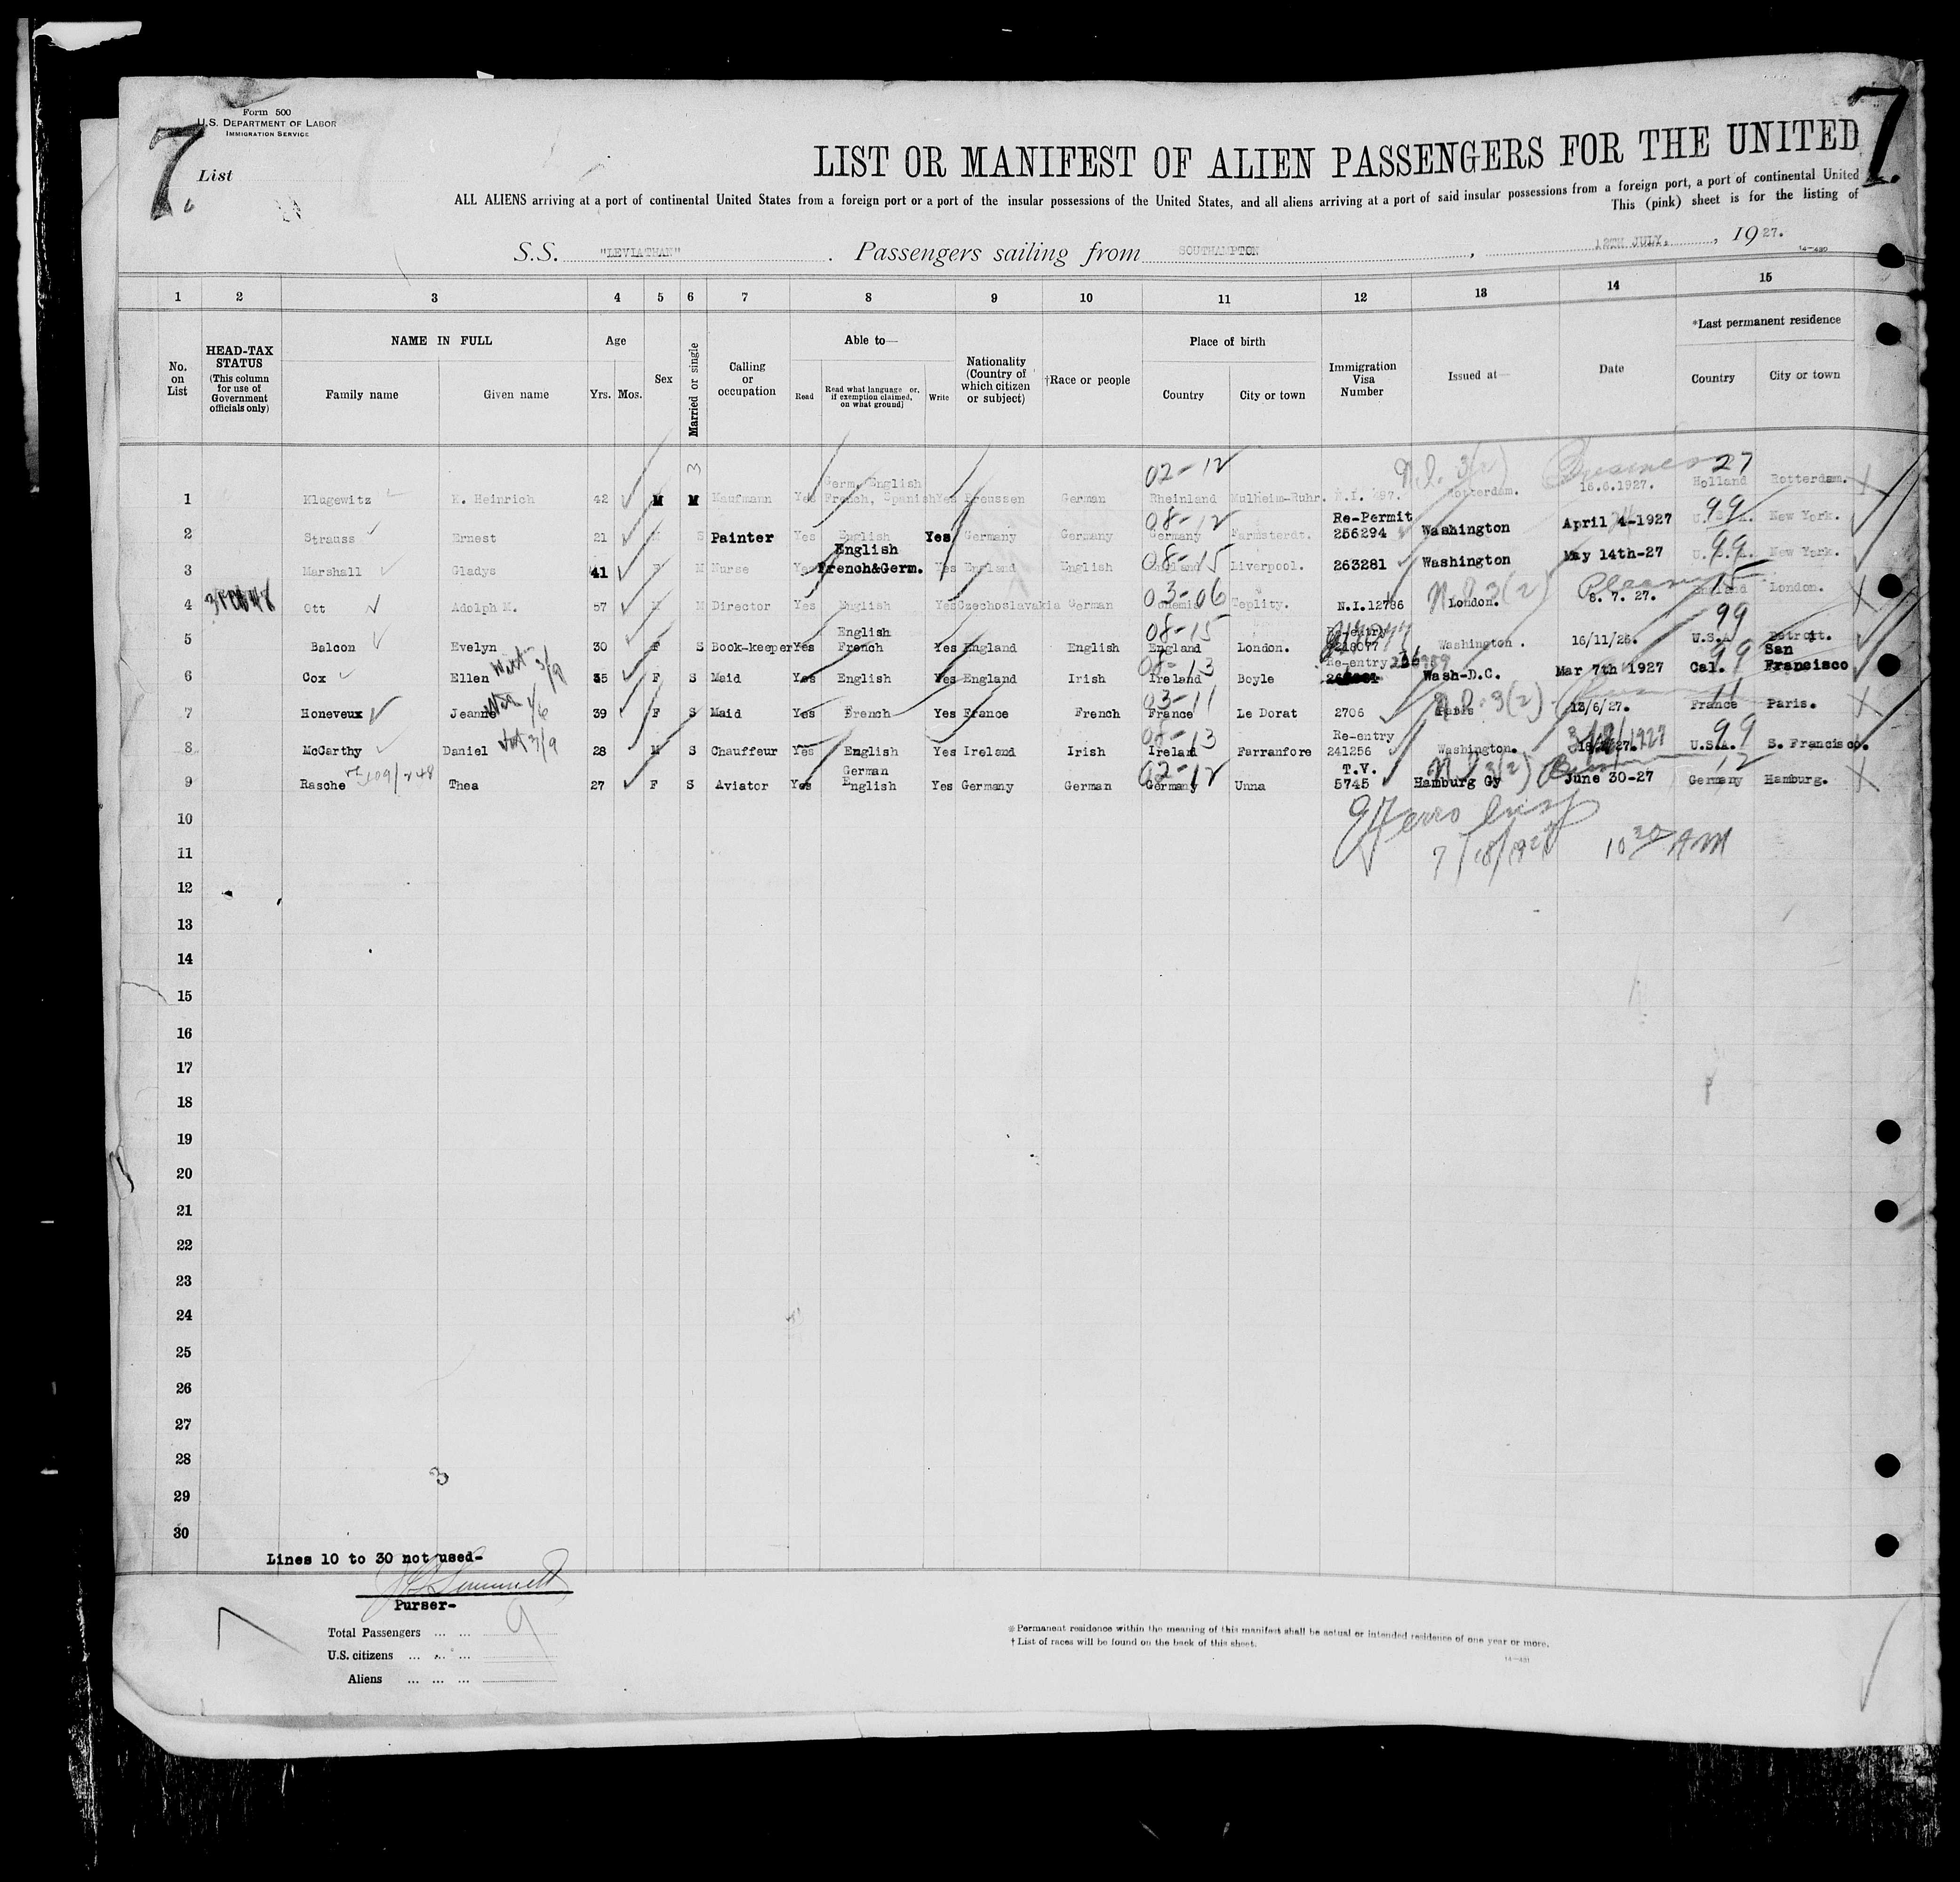 7
Form 500
U.S. DEPARTMENT OF LABOR
IMMIGRATION SERVICE
List
LIST OR MANIFEST OF ALIEN PASSENGERS FOR THE UNITED
ALL ALIENS arriving at a port of continental United States from a foreign port or a port of the insular possessions of the United States, and all aliens arriving at a port of said insular possessions from a foreign port, a port of continental United
This (pink) sheet is for the listing of
S.S. "LEVIATHAN" . Passengers sailing from SOUTHAMPTON , 12TH JULY. , 1927.
14-430
1 2 3 4 5 6 7 8 9 10 11 12 13 14 15
No. on List
HEAD-TAX STATUS (This column for use of Government officials only)
NAME IN FULL
Family name Given name
Age
Yrs. Mos.
Sex
Married or single
Calling or occupation
Able to—
Read Read what language or, if exemption claimed, on what ground) Write
Nationality (Country of which citizen or subject)
†Race or people
Place of birth
Country City or town
Immigration Visa Number
Issued at—
Date
*Last permanent residence
Country City or town
02-12 N.I. 3(2) Business 27
1 Klugewitz K. Heinrich 42 M M Kaufmann Yes Germ, English French, Spanish Yes Preussen German Rheinland Mulheim-Ruhr. N.I. Rotterdam. 1927. Holland Rotterdam.
08-12 99
2 Strauss Ernest 21 M S Painter Yes English Yes Germany Germany Germany Re-Permit 256294 Washington April 4-1927 U.S.A. New York.
08-15 99
3 Marshall Gladys 41 F M Nurse Yes English French&Germ. Yes England English England Liverpool. 263281 Washington May 14th-27 U.S.A. New York.
03-06 N.I. 3(2) 15
4 Ott Adolph M. 57 M M Director Yes English Yes Czechoslavakia German Bohemia Teplity. N.I.12786 London. 8. 7. 27. England London.
08-15 99
5 Balcon Evelyn 30 F S Book-keeper Yes English French Yes England English England London. 218077 Washington. 16/11/26. U.S.A Detroit.
08-13 99
6 Cox Ellen 35 F S Maid Yes English Yes England Irish Ireland Boyle Re-entry Wash-D.C. Mar 7th 1927 Cal. San Fransisco
03-11 N.I. 3(2) 11
7 Honeveux Jeanne 39 F S Maid Yes French Yes France French France Le Dorat 2706 Paris 13/6/27. France Paris.
08-13 99
8 McCarthy Daniel 28 M S Chauffeur Yes English Yes Ireland Irish Ireland Farranfore Re-entry 241256 Washington. U.S.A. S. Francisco.
02-12 N.I 3(2) 12
9 Rasche Thea 27 F S Aviator Yes German English Yes Germany German Germany Unna T.V. 5745 Hamburg Gy June 30-27 Germany Hamburg.
10
7/18/1927 10 30 AM
11
12
13
14
15
16
17
18
19
20
21
22
23
24
25
26
27
28
3
29
30
Lines 10 to 30 not used-
Purser-
Total Passengers ... ... 9
U.S. citizens ... ... ...
Aliens ... ... ...
* Permanent residence within the meaning of this manifest shall be actual or intended residence of one year or more.
† List of races will be found on the back of this sheet.
14-431